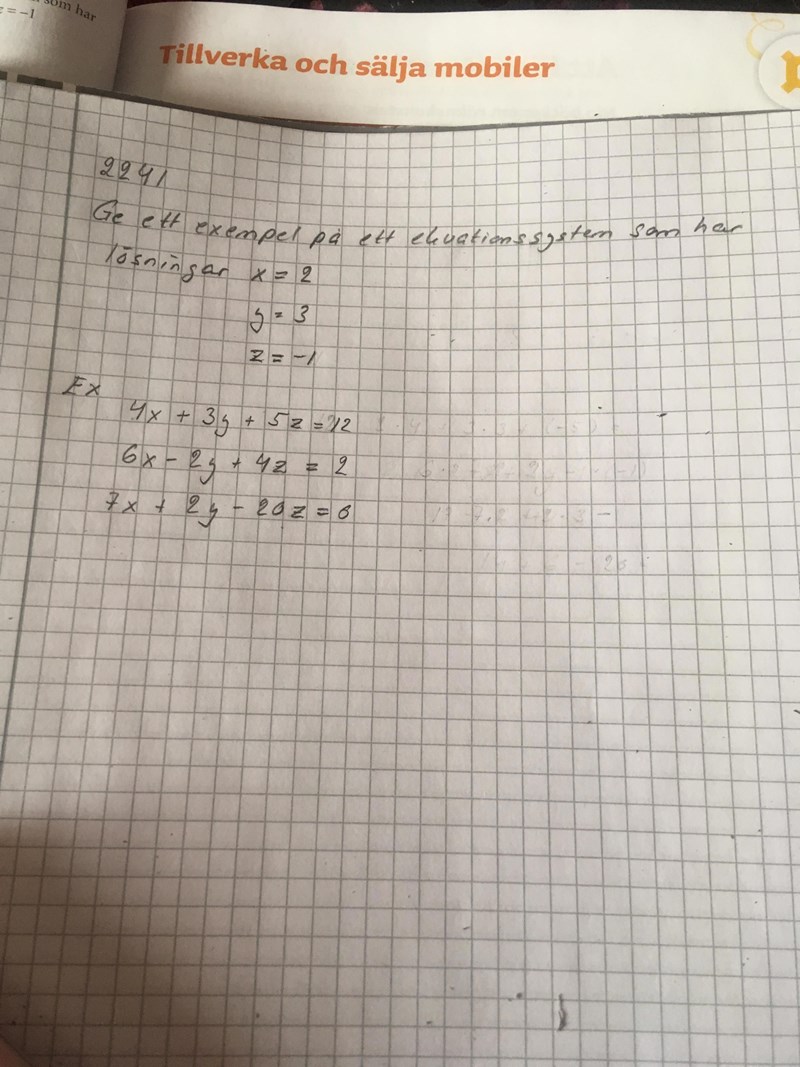 som har
z = −1
Tillverka och sälja mobiler
2241
Ge ett exempel på ett ekvationssystem som har
lösningar x = 2
y = 3
z = -1
Ex
4x + 3y + 5z = 12
6x - 2y + 4z = 2
7x + 2y - 20z = 0